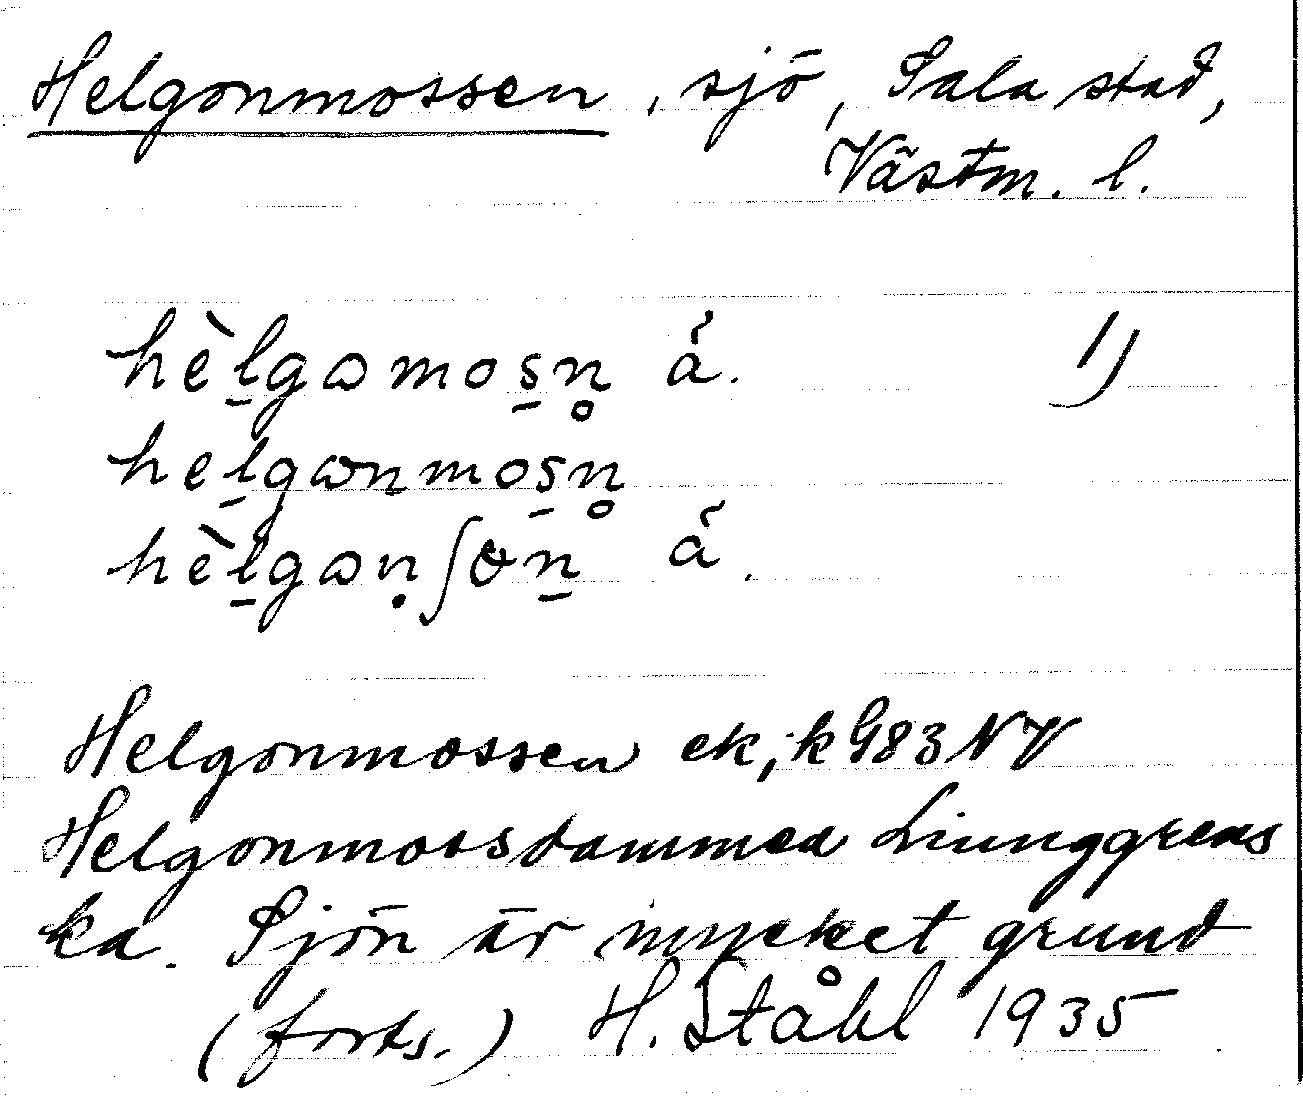 Helgonmossen, sjö, Sala stad,
Västm. l.
hèl̠gɷmos̠n̥ ǻ. 1)
hel̠gɷnmos̠n̥
hèl̠gɷṇʃɵn̠ ǻ.
Helgonmossen ek; k G83 NV
Helgonmossdammen Liunggrens
ka. Sjön är mycket grund
(forts.) H. Ståhl 1935